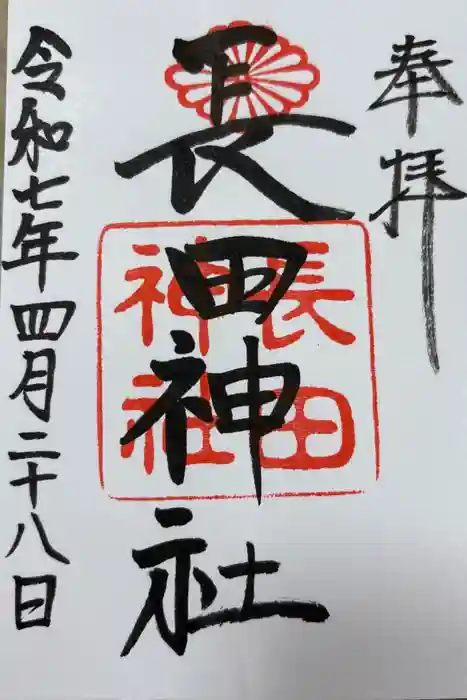 奉拝
長田神社
長田
神社
令和七年四月二十八日